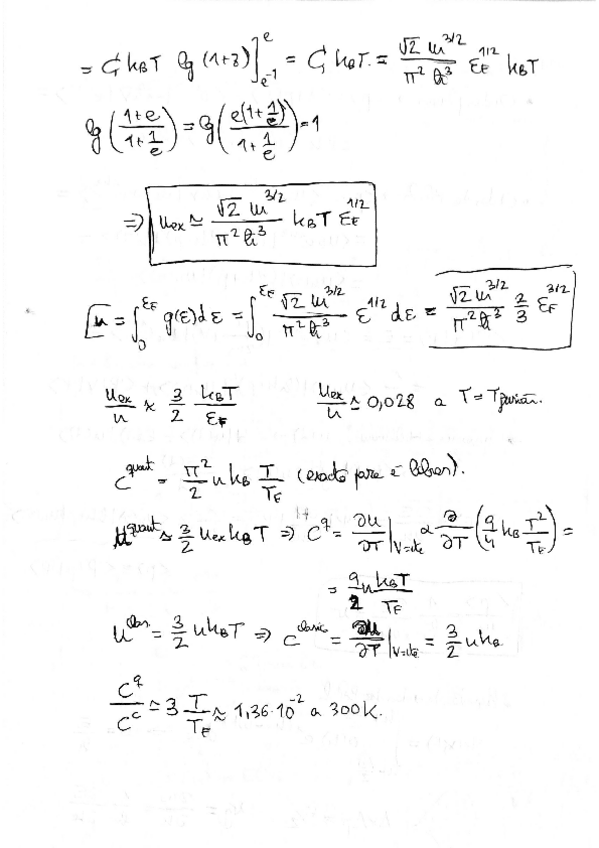 = C₁ k_B T lg (1+z) ]_{e⁻¹}^{e} = C₁ k_B T. = √2 m^{3/2} / π² ħ³ ε_F^{1/2} k_B T
lg ( (1+e) / (1+1/e) ) = lg ( e(1+1/e) / (1+1/e) ) = 1
⇒ n_ex ≃ √2 m^{3/2} / π² ħ³ k_B T ε_F^{1/2}
n = ∫_0^{ε_F} g(ε)dε = ∫_0^{ε_F} √2 m^{3/2} / π² ħ³ ε^{1/2} dε = √2 m^{3/2} / π² ħ³ 2/3 ε_F^{3/2}
n_ex/n ≈ 3/2 k_B T / ε_F n_ex/n ≃ 0,028 a T = T
C^{quant} = π²/2 n k_B T/T_F (exacto para é libres).
u^{quant} ≃ 3/2 n_ex k_B T ⇒ C^q = ∂u/∂T |_{V=cte} α ∂/∂T ( 9/4 k_B T²/T_F ) =
= 9/2 n k_B T / T_F
u^{clas.} = 3/2 n k_B T ⇒ C^{clasic} = ∂u/∂T |_{V=cte} = 3/2 n k_B
C^q / C^c ≃ 3 T/T_F ≈ 1,36·10⁻² a 300K.